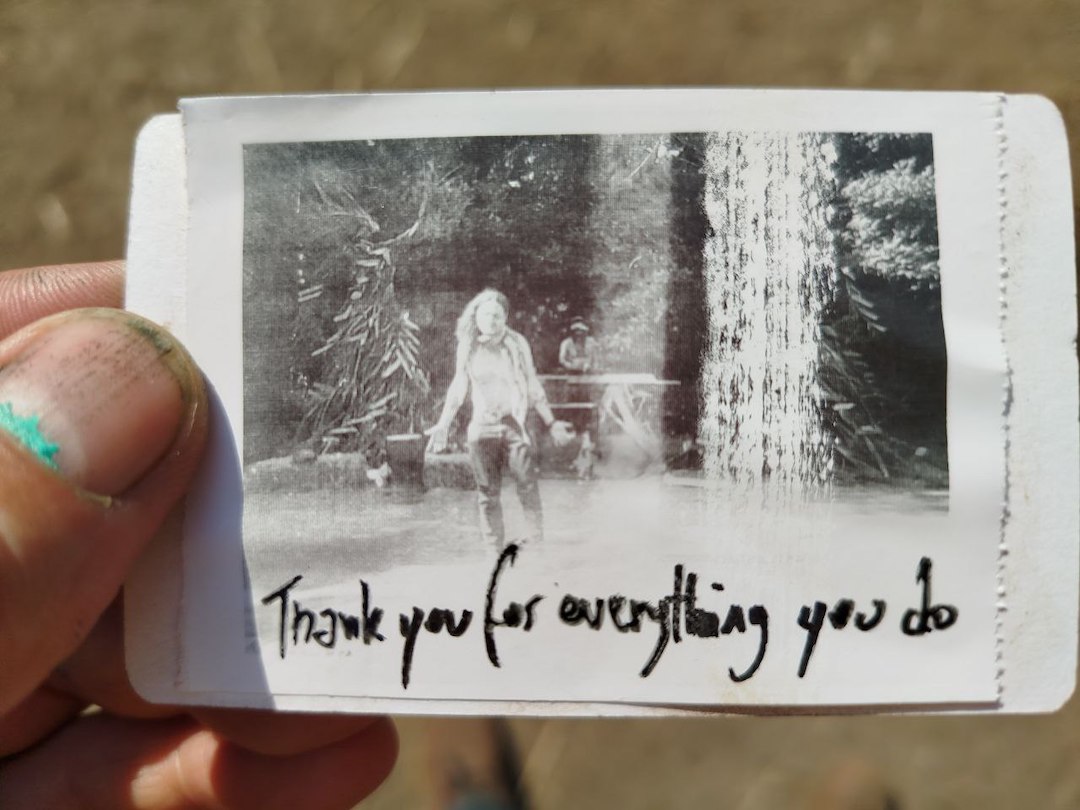 Thank you for everything you do